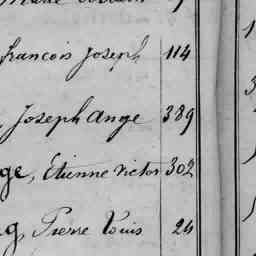 françois Joseph 114
, Joseph Ange 389
ge, Etienne Victor 302
g, Pierre Louis 24